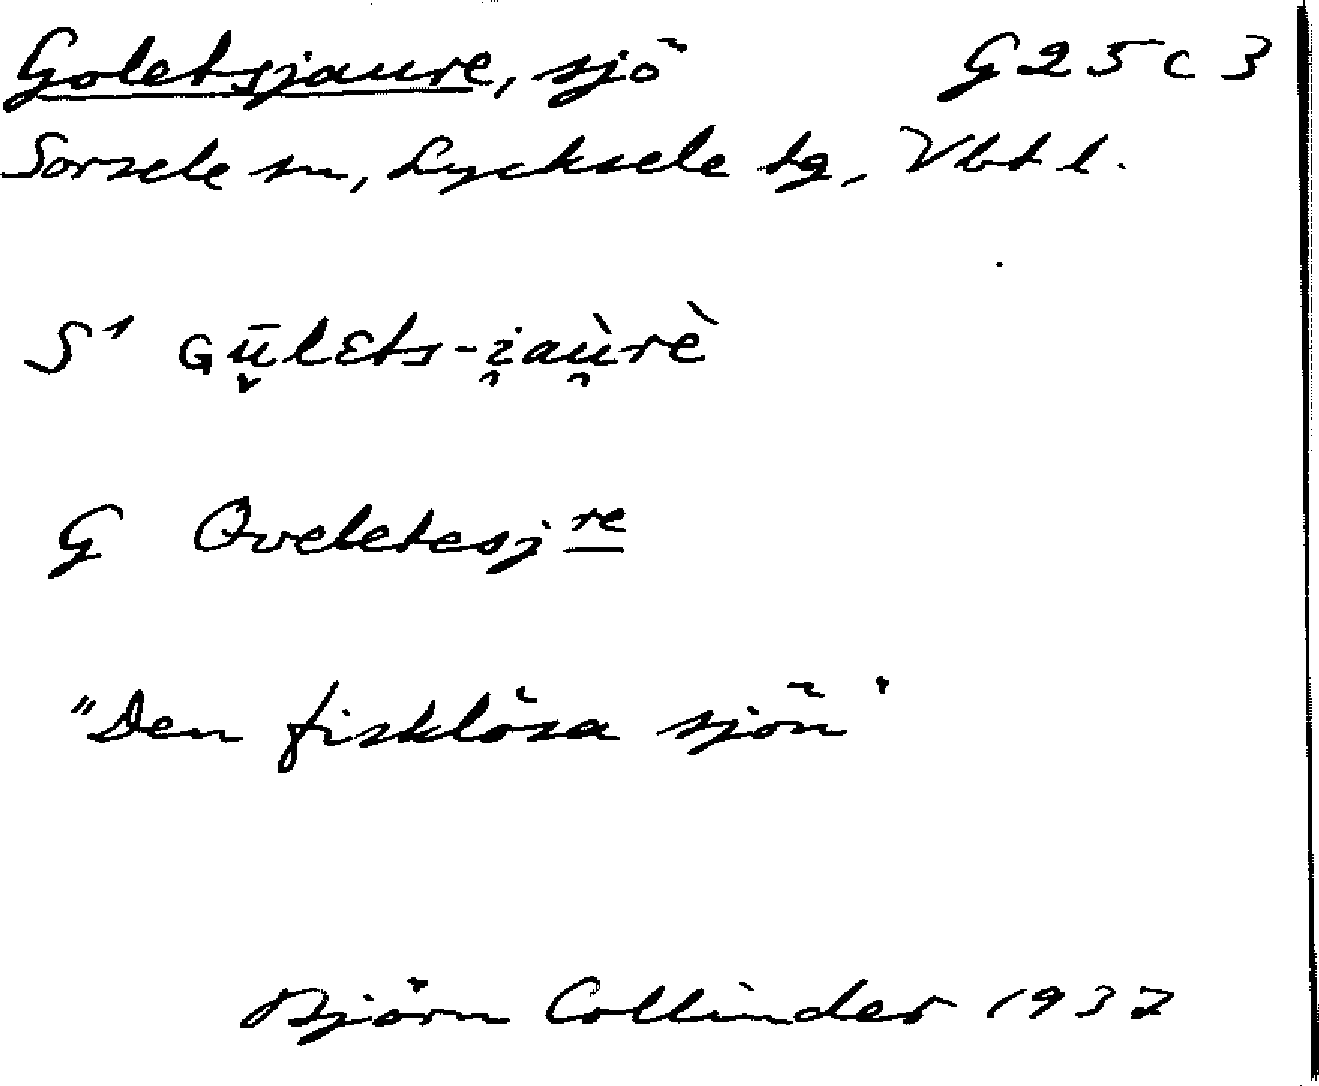 Goletsjaure, sjö G25c3
Sorsele sn, Lycksele tg, Vbt l.
S¹ Gu̬̅lɛts-i̯aù̯rè
G Qveletesj re
"Den fisklösa sjön"
Björn Collinder 1937